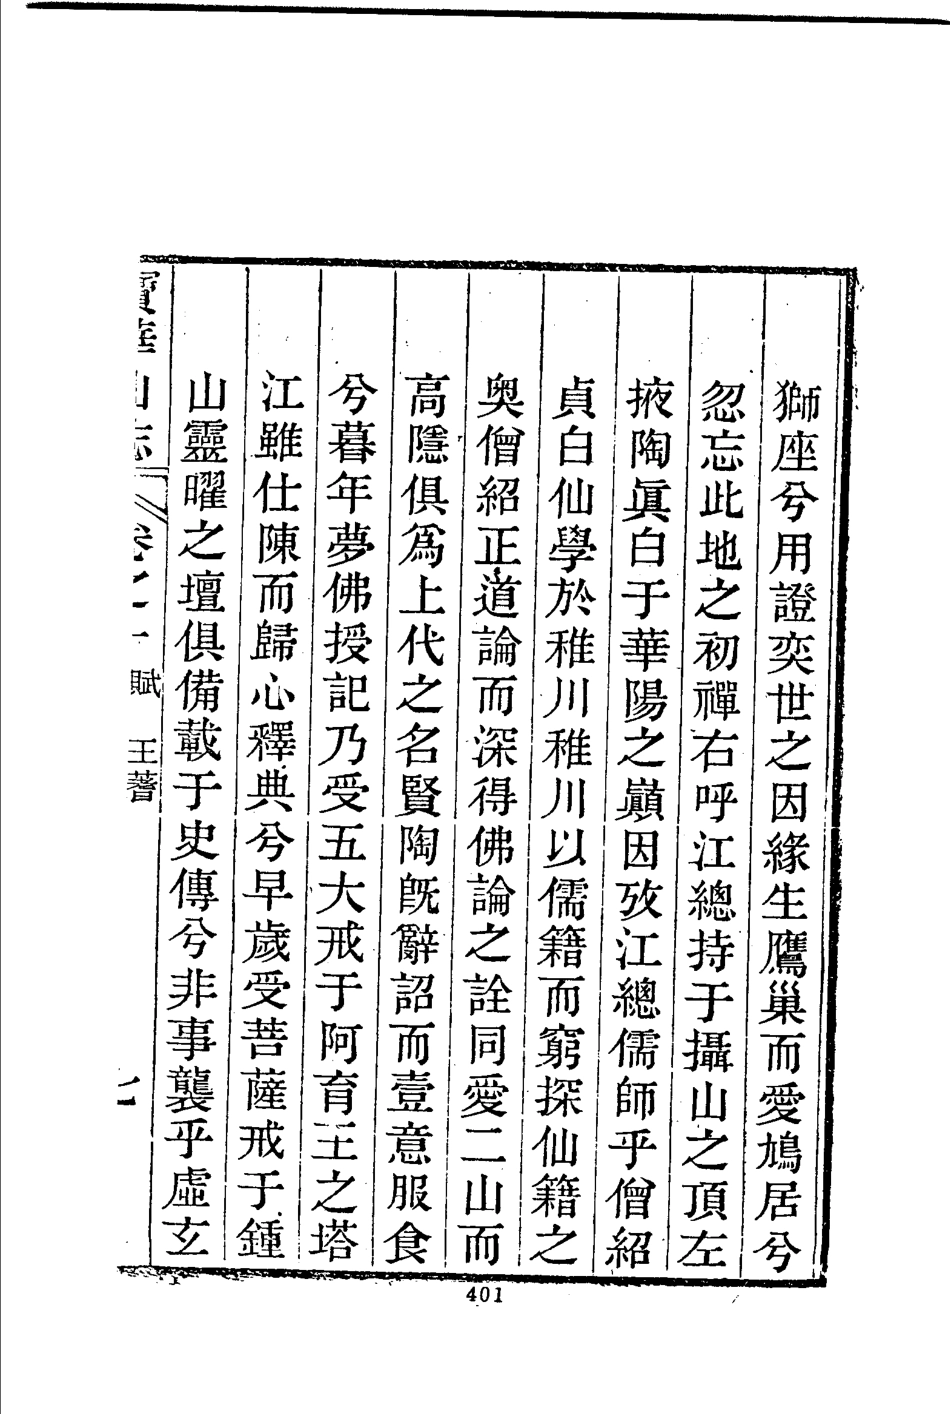 獅座兮用證奕世之因緣生鷹巢而愛鳩居兮
忽忘此地之初禪右呼江總持于攝山之頂左
掖陶眞白于華陽之巔因攷江總儒師乎僧紹
貞白仙學於稚川稚川以儒籍而窮探仙籍之
奥僧紹正道論而深得佛論之詮同愛二山而
高隱俱爲上代之名賢陶旣辭詔而壹意服食
兮暮年夢佛授記乃受五大戒于阿育王之塔
江雖仕陳而歸心釋典兮早歲受菩薩戒于鍾
山靈曜之壇俱備載于史傳兮非事襲乎虛玄
寶華山志 卷之十 賦 王著 七
401